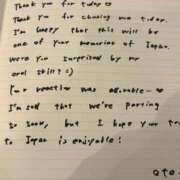 Thank you for today ♡
Thank you for choosing me today.
I'm happy that this will be
one of your memories of Japan.
Were you surprised by my
oral skill? :)
Your reaction was adorable ♡
I'm sad that we're parting
so soon, but I hope your t
to Japan is enjoyable!